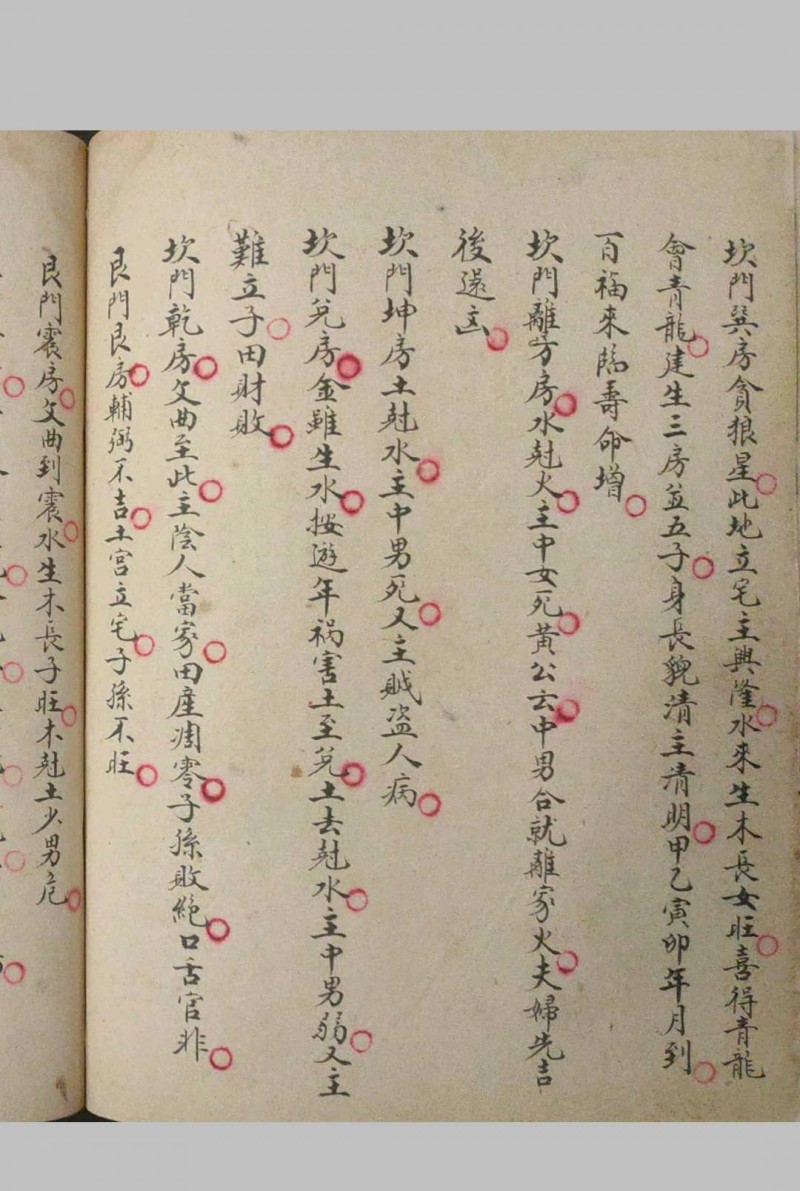 坎門巽房貪狼星此地立宅主興隆水來生木長女旺喜得青龍
會青龍建生三房並五子身長貌清主清明甲乙寅卯年月到
百福來臨壽命增
坎門離方房水尅火主中女死黃公云中男合就離家火夫婦先吉
後還凶
坎門坤房土尅水主中男死又主賊盜人病
坎門兌房金雖生水按遊年禍害土至兌土去尅水主中男弱又主
難立子田財敗
坎門乾房文曲至此主陰人當家田產凋零子孫敗絕口舌官非
艮門艮房輔弼不吉土宮立宅子孫不旺
艮門震房文曲到震水生木長子旺木尅土少男危